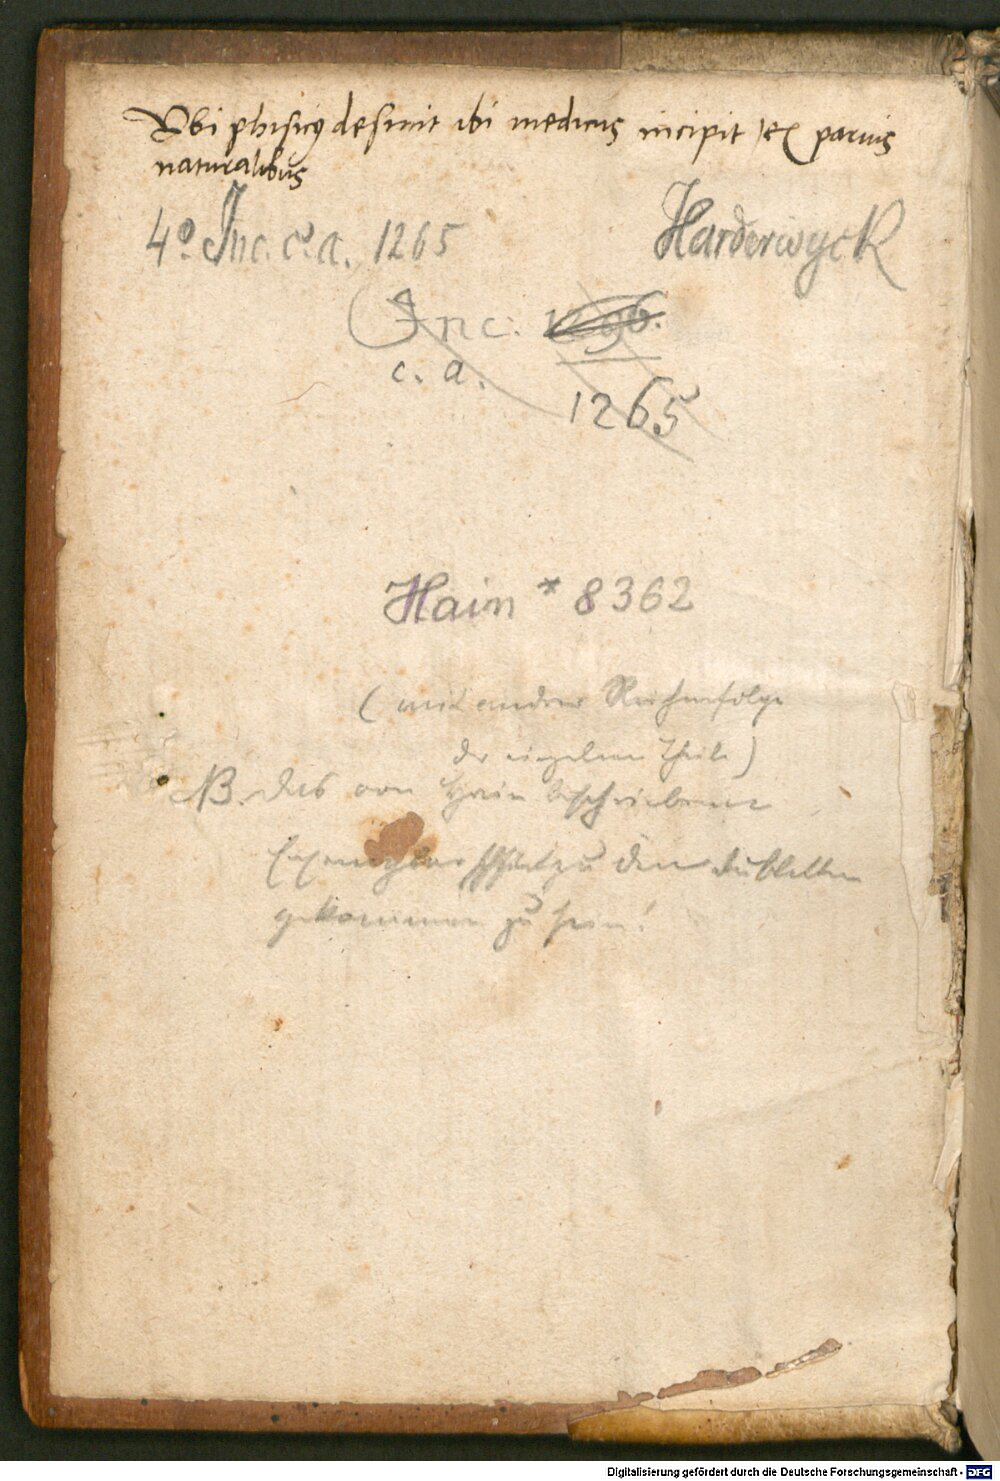 Vbi phisicꝯ desinit ibi medicus incipit ex paruis
naturalibus
4° Inc. c. a. 1265 Harderwyck
Inc.
c. a.
1265
Hain * 8362
(mit andrer Reihenfolge
der einzelnen Theile)
NB. das von Hain beschriebene
Exemplar scheint zu den Dubletten
gekommen zu sein!
Digitalisierung gefördert durch die Deutsche Forschungsgemeinschaft - DFG